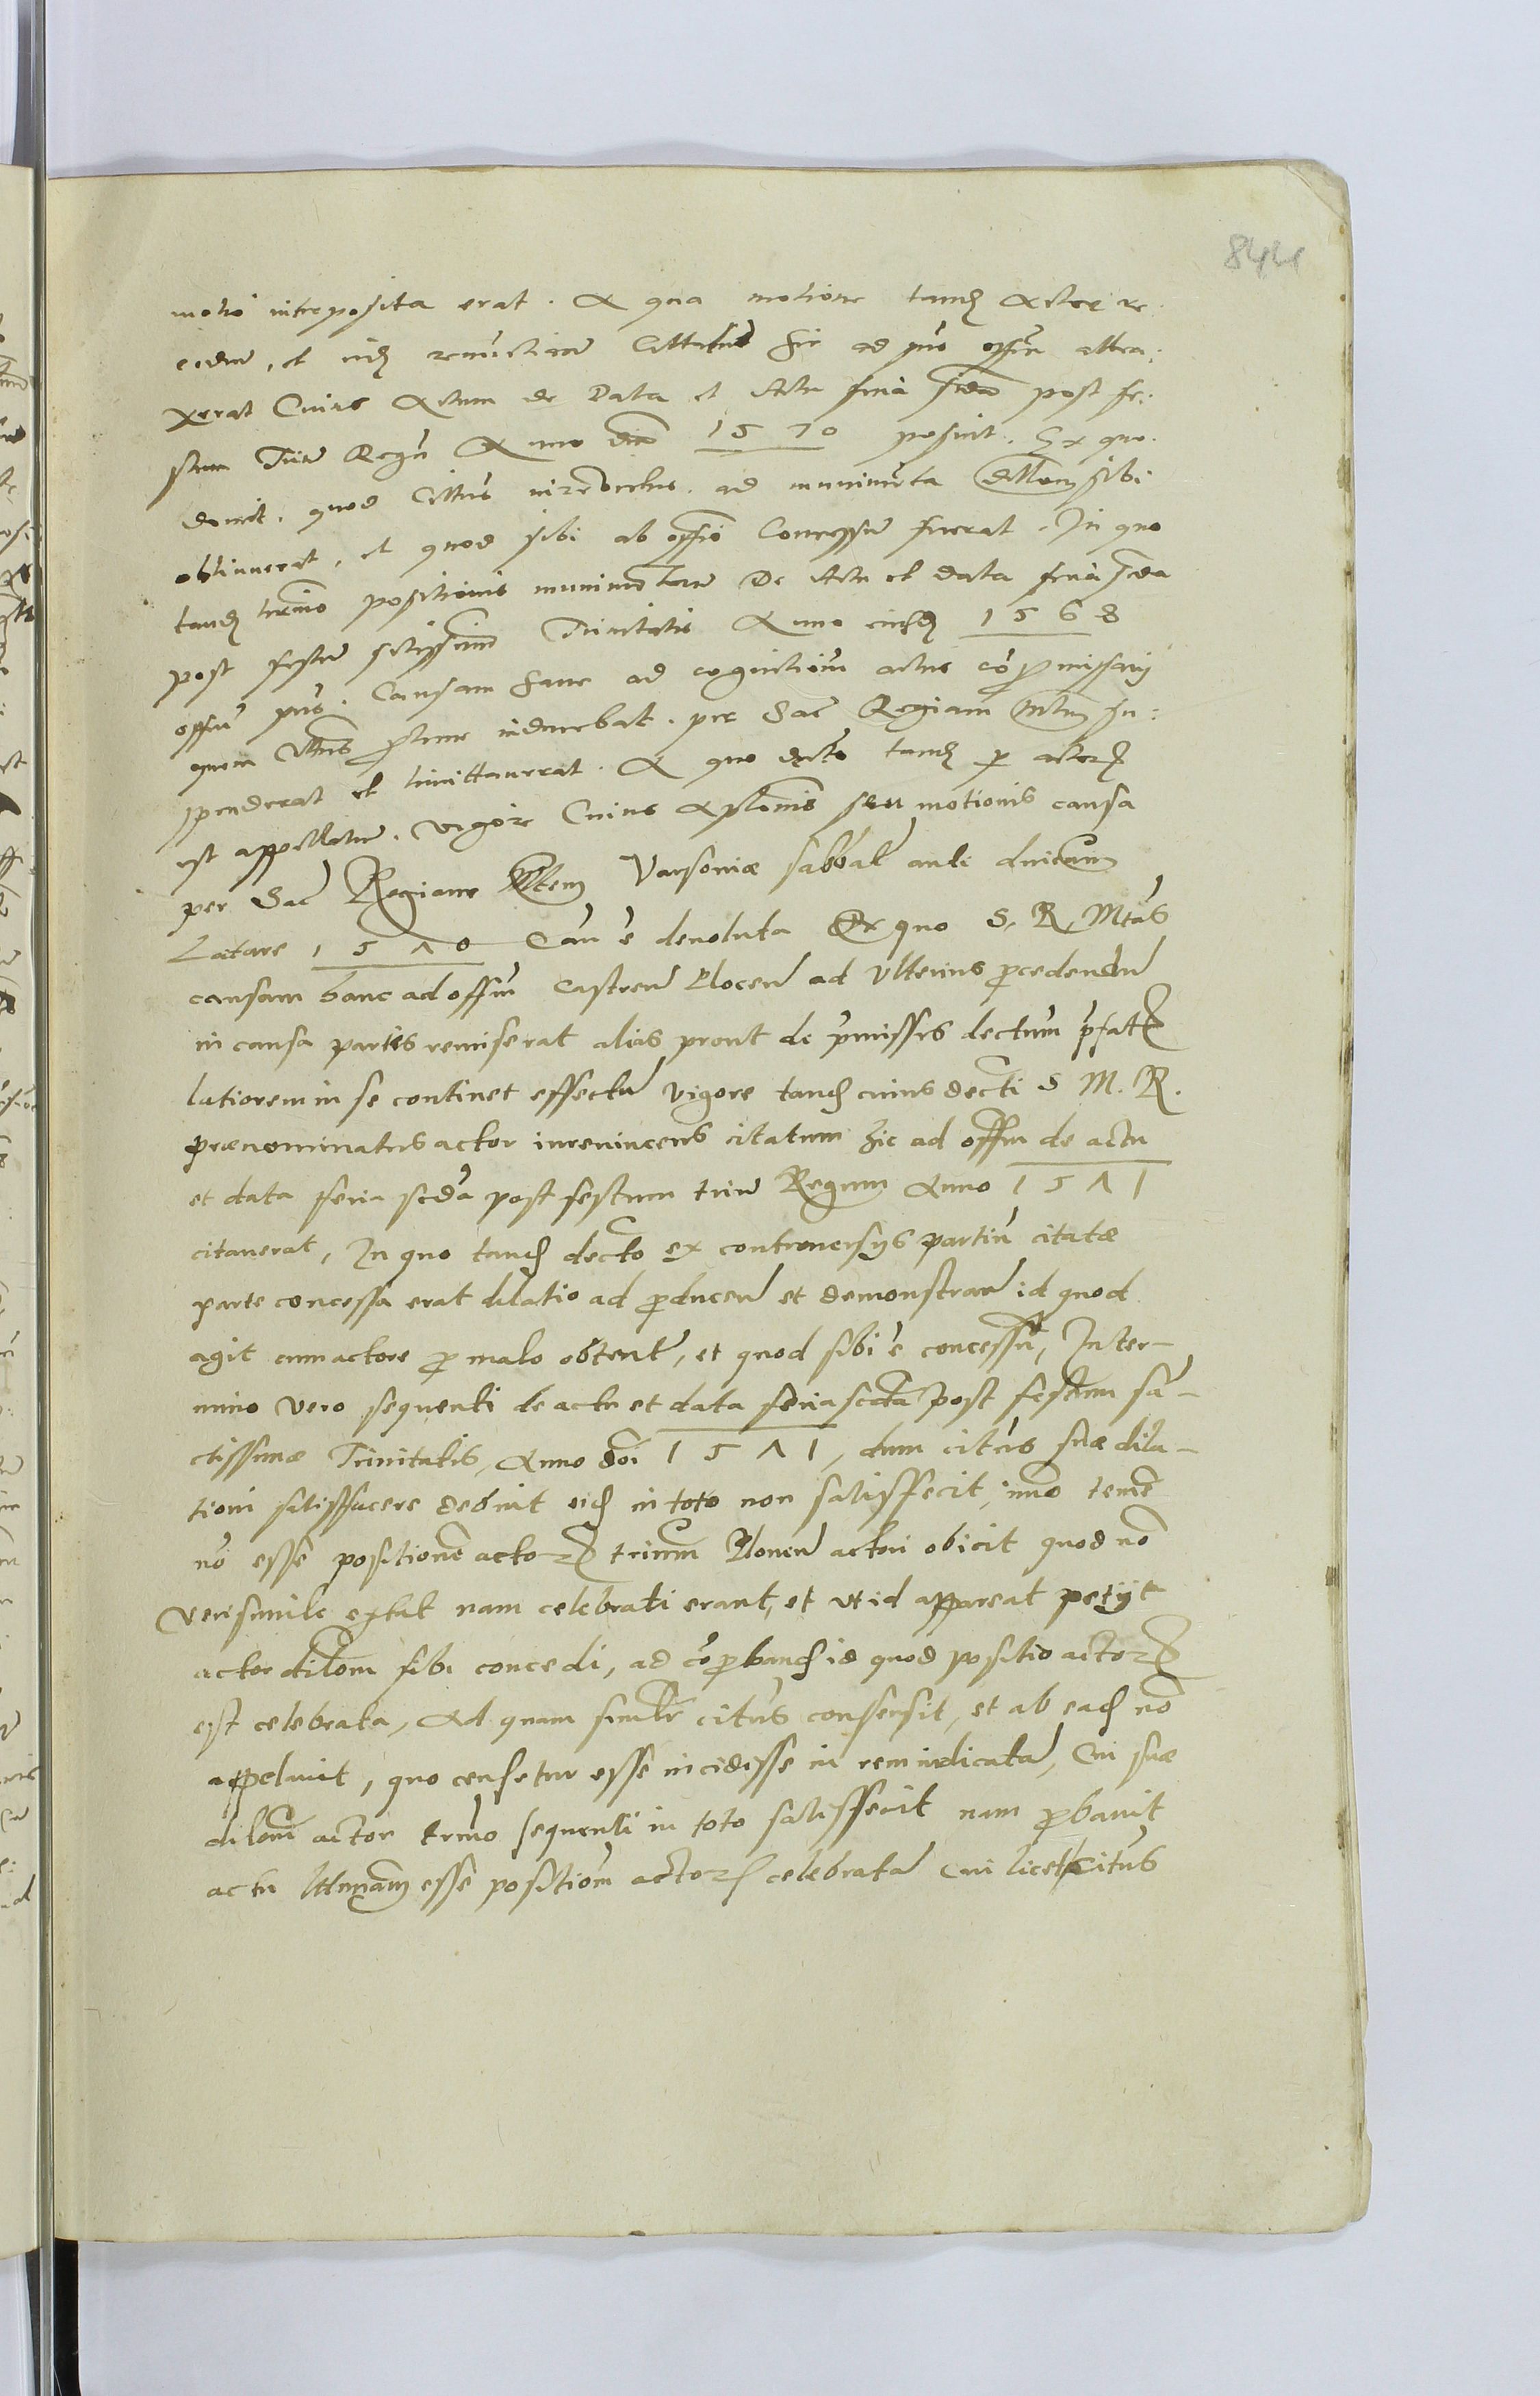 844
motio interposita erat. A qua motione tandē Actor re
cedēn, et reinvincēn Cittatus hic ad prns offm attra:
xerat Cuius Actum de Data et Actu feria scda post fe:
stum Triū Regū Anno dni 1570 posuit. Ex quo
quod Cittus ad munimēta dillaem sibi
obtinuerat, et quod sibi ab offio Concessum fuerat. In quo
tandē termino positionis munimētorum De Actu et data feria scda
post festum sctissimae Trinitatis Anno eiusdē 1568
offm prns. Causam hanc ad cognitionem actus cōpromissarij
quem inducebat. per Sac Regiam Mtem Su:
spenderat et limittaverat. A quo decto tandē p actorē
est appellatum. vigore Cuius Applonis seu motionis causa
per Sac Regiam Mtem Varsoviæ sabbat ante dnicam
Laetare 1570 Cau ē devoluta Ex quo S. R. Mtas
causam hanc ad offm Castren Plocen ad Ulterius procedendū
in causa partis remiserat alias prout de p̄missis dectum p̄fatē
latiorem in se continet effectū vigore tandē cuius decti S M. R.
prænominatus actor inrevincens citatum hic ad offm de actu
et data feria scda post festum triū Regum Anno 1571
citaverat, In quo tandē decto ex controversys partiū citatæ
parte concessa erat dilatio ad producen et demonstran id quod
agit cum actore pro malo obtent, et quod sibi ē concessū, In ter-
mino vero sequenti de actu et data feria scda post festum sā-
ctissimæ Trinitatis, Anno doi 1571, dum citus suæ dila-
tioni satisfacere debuit eidē in toto non satisffecit, imo teme
nō esse positionē actorē trium Plonen actori obicit quod nō
verisimile extat nam celebrati erant, et ut id appareat petijt
actor dilom sibi concedi, ad cōprobandē id quod positio actorē
est celebrata, Ad quam simlr citus consensit, et ab eadē nō
appelavit, quo censetur esse incidisse in rem iudicatā, Cui suæ
dilom actor trmo sequenti in toto satisffecit nam probavit
actu ultimam esse positiom actorē celebratā Cui licet Citus